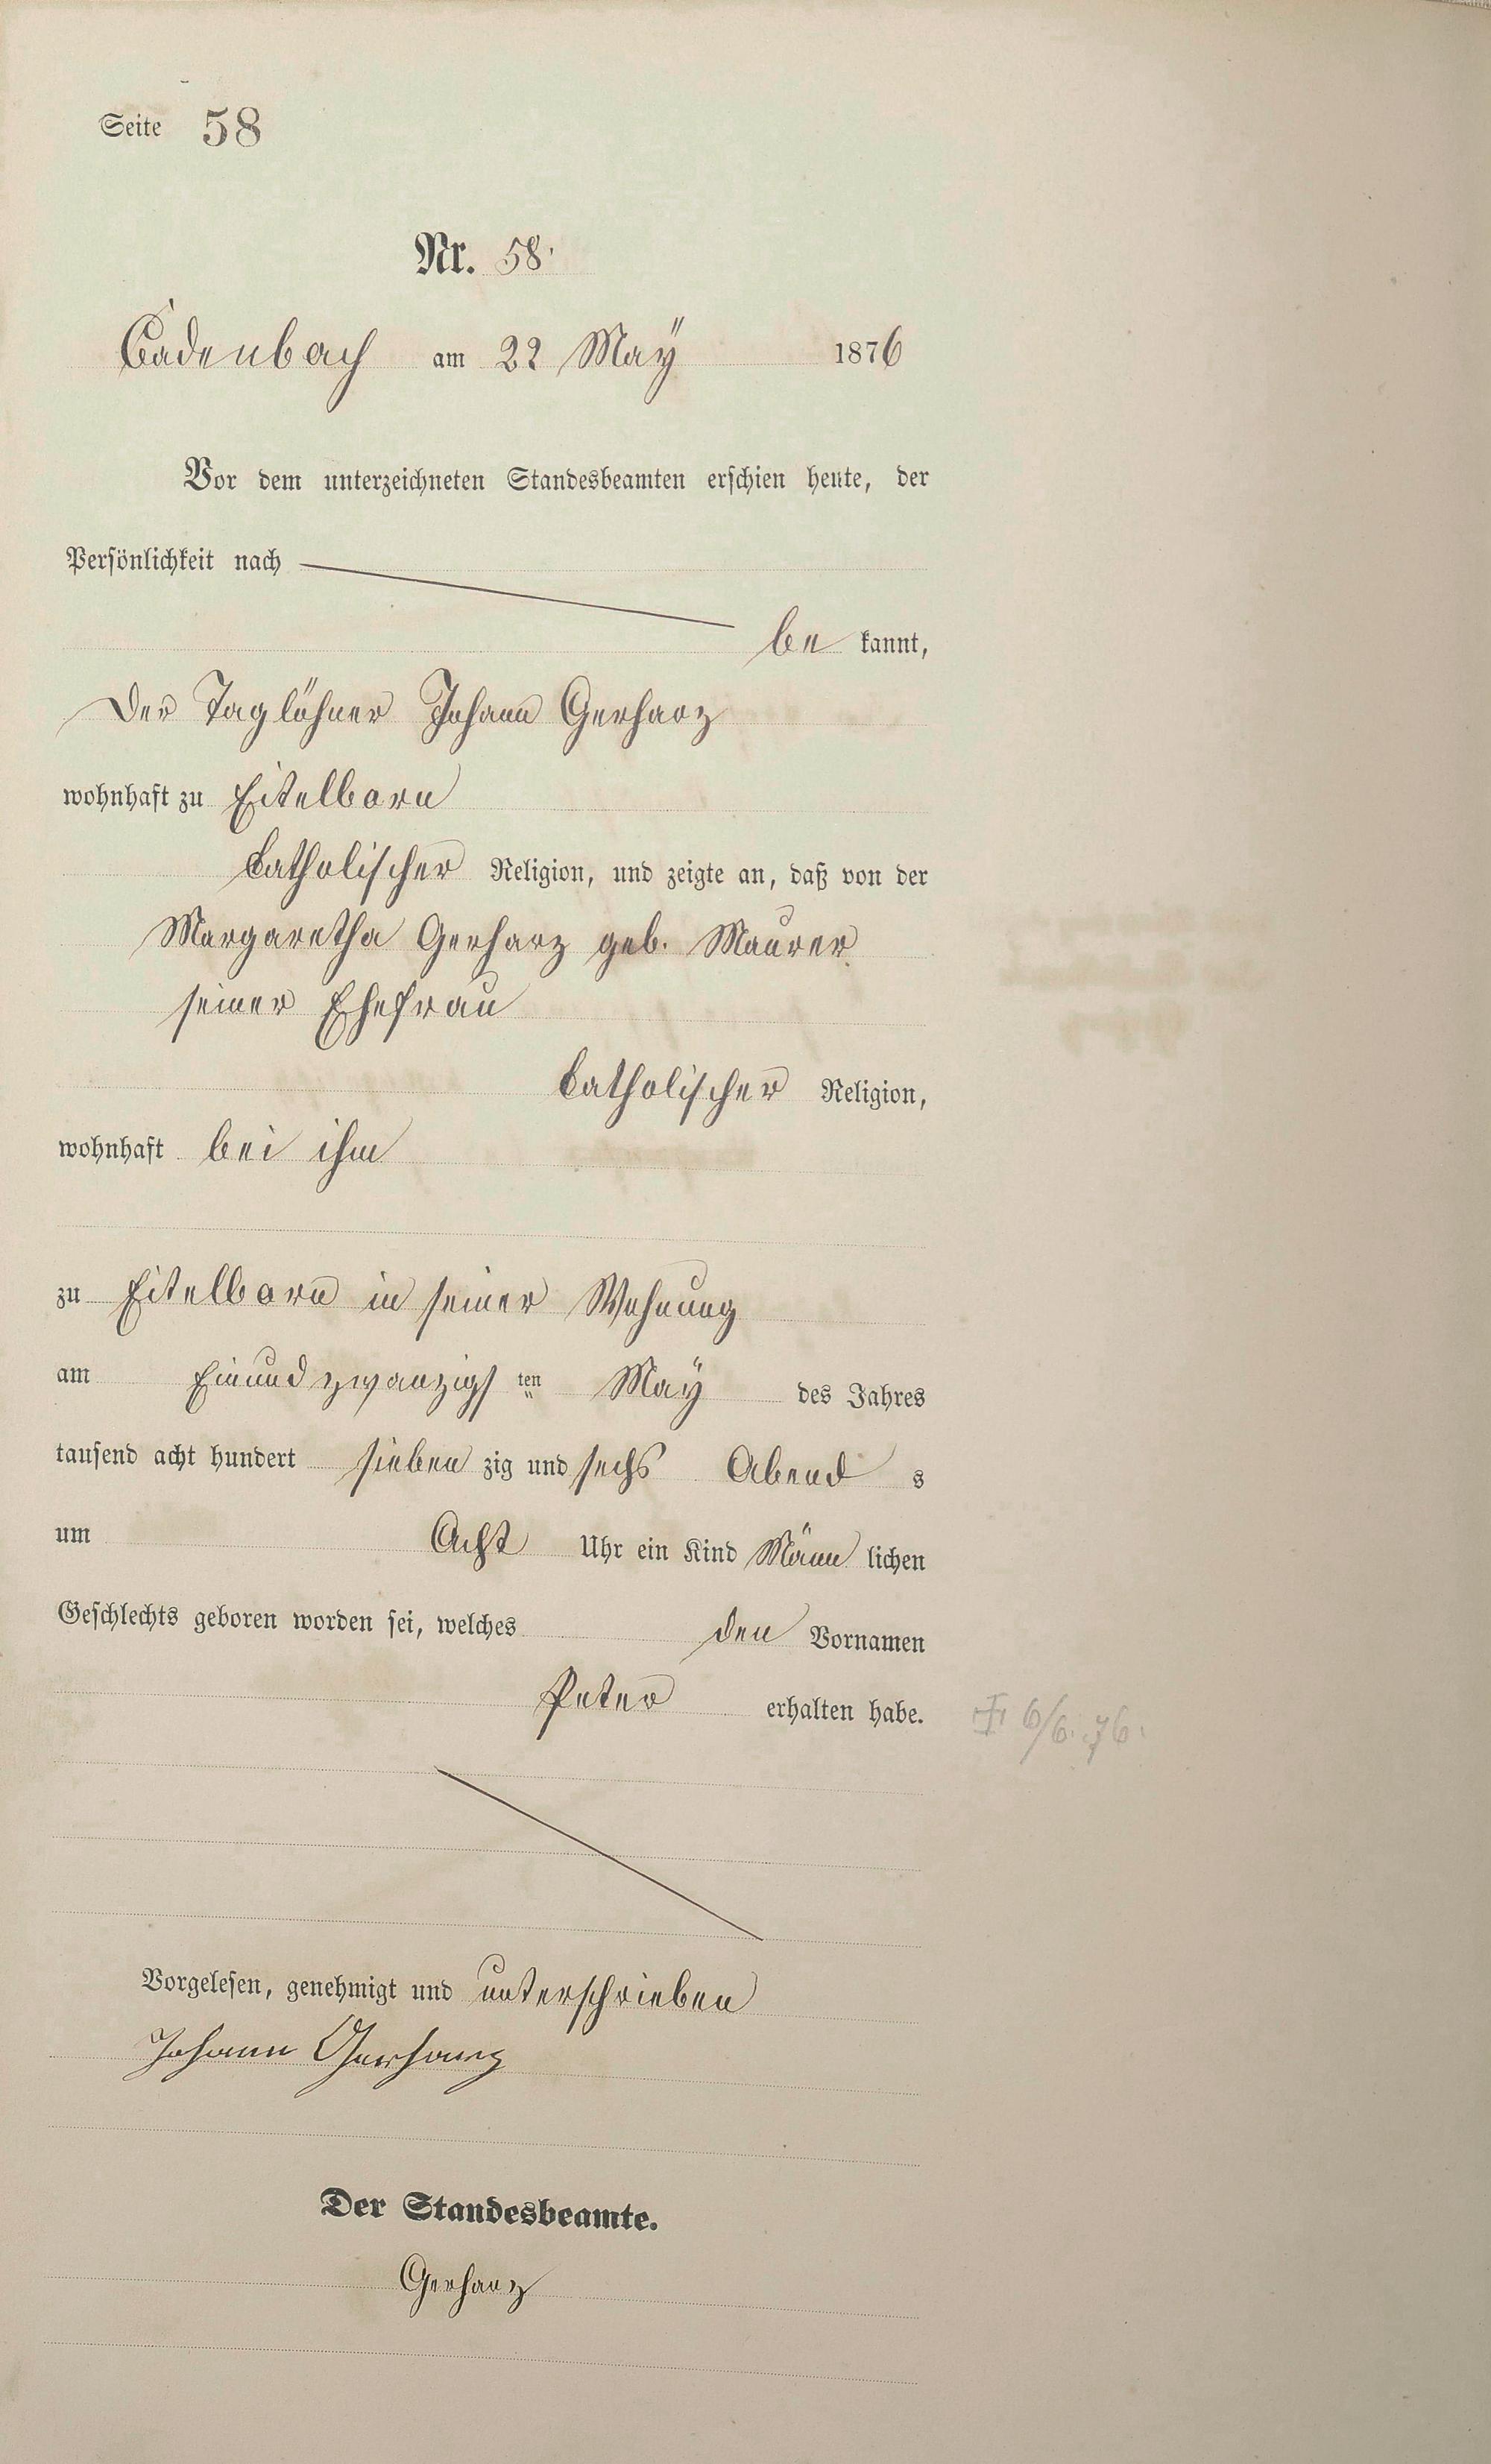 Seite 58
Nr. 58.
Cadenbach am 22 May 1876
Vor dem unterzeichneten Standesbeamten erschien heute, der
Persönlichkeit nach
be kannt,
Der Taglöhner Johann Gerharz
wohnhaft zu Eitelborn
Catholischer Religion, und zeigte an, daß von der
Margaretha Gerharz geb. Maurer
seiner Ehefrau
Catholischer Religion,
wohnhaft bei ihm
zu Eitelborn in seiner Wohnung
am Einundzwanzigs ten May des Jahres
tausend acht hundert sieben zig und sechs Abend s
um Acht Uhr ein Kind Männ lichen
Geschlechts geboren worden sei, welches den Vornamen
Peter erhalten habe.
† 6/6. 76.
Vorgelesen, genehmigt und unterschrieben
Johann Gerharz
Der Standesbeamte.
Gerharz